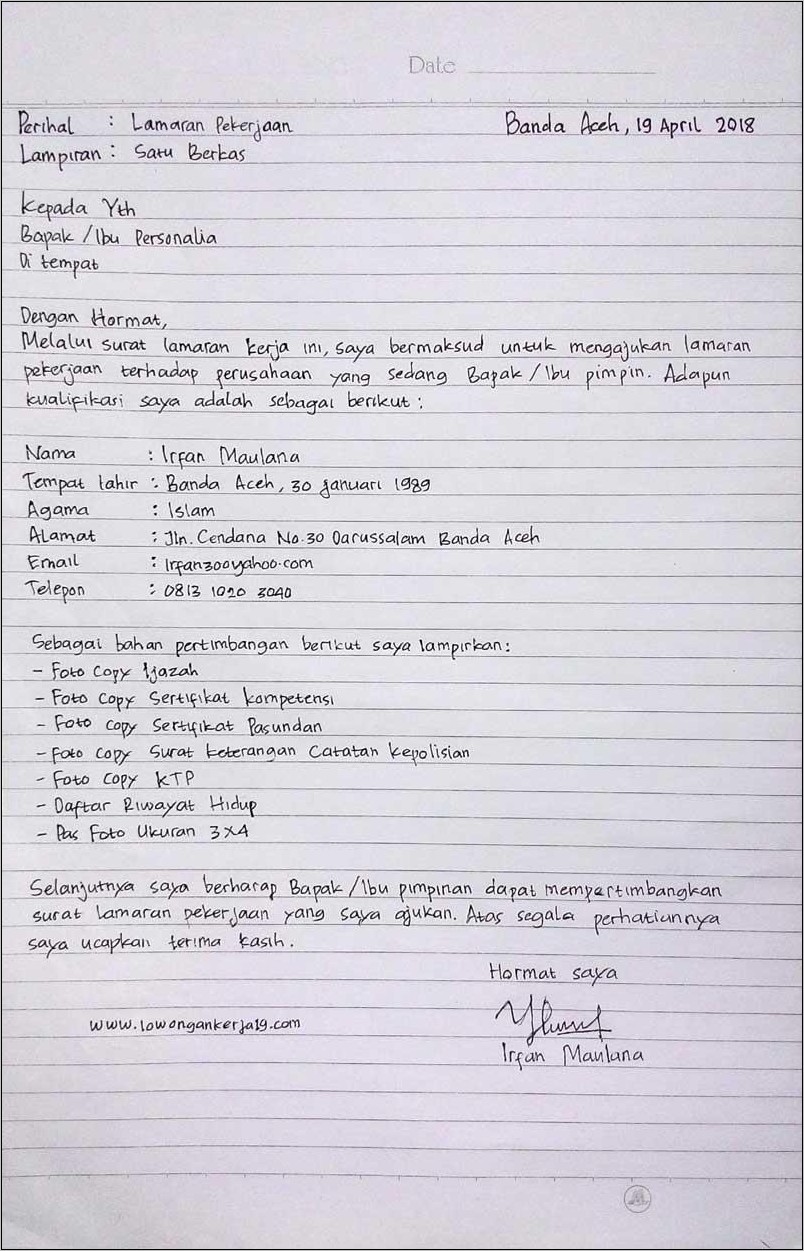 Date
Perihal : Lamaran Pekerjaan Banda Aceh, 19 April 2018
Lampiran : Satu Berkas
Kepada Yth
Bapak / Ibu Personalia
Di tempat
Dengan Hormat,
Melalui surat lamaran kerja ini, saya bermaksud untuk mengajukan lamaran
pekerjaan terhadap perusahaan yang sedang Bapak / Ibu pimpin. Adapun
kualifikasi saya adalah sebagai berikut :
Nama : Irfan Maulana
Tempat lahir : Banda Aceh, 30 Januari 1989
Agama : Islam
Alamat : Jln. Cendana No.30 Darussalam Banda Aceh
Email : Irfan300yahoo.com
Telepon : 0813 1020 3040
Sebagai bahan pertimbangan berikut saya lampirkan :
- Foto Copy Ijazah
- Foto Copy Sertifikat kompetensi
- Foto copy Sertifikat Pasundan
- Foto Copy Surat keterangan Catatan Kepolisian
- Foto Copy KTP
- Daftar Riwayat Hidup
- Pas Foto Ukuran 3x4
Selanjutnya saya berharap Bapak / Ibu pimpinan dapat mempertimbangkan
surat lamaran pekerjaan yang saya ajukan. Atas segala perhatiannya
saya ucapkan terima kasih.
Hormat saya
www.lowongankerja19.com
Irfan Maulana